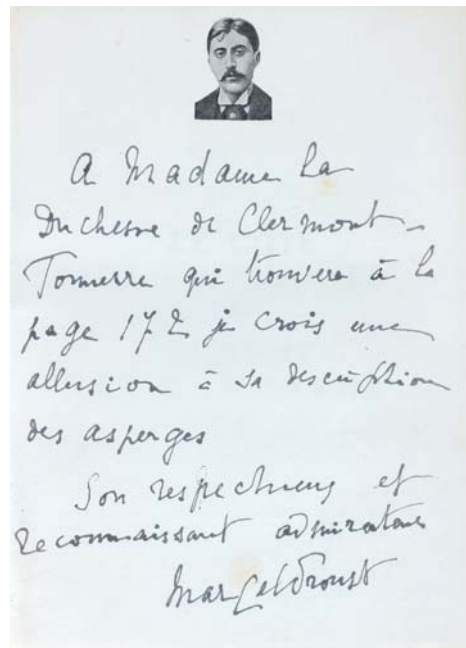 A Madame la
Duchesse de Clermont-
Tonnerre qui trouvera à la
page 172 je crois une
allusion à sa description
des asperges
Son respectueux et
reconnaissant admirateur
Marcel Proust